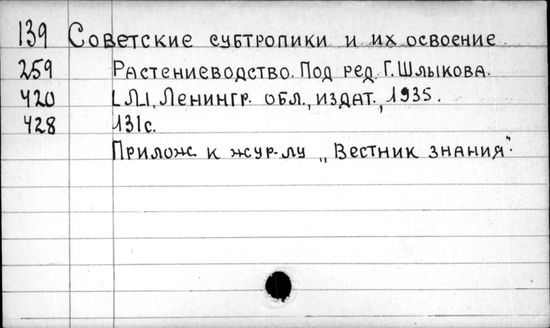 139 Советские субтропики и их освоение.
259 Растениеводство. Под ред. Г. Шлыкова.
420 [Л], Ленингр. обл., издат., 1935.
428 131с.
Прилож. к жур-лу „Вестник знания".